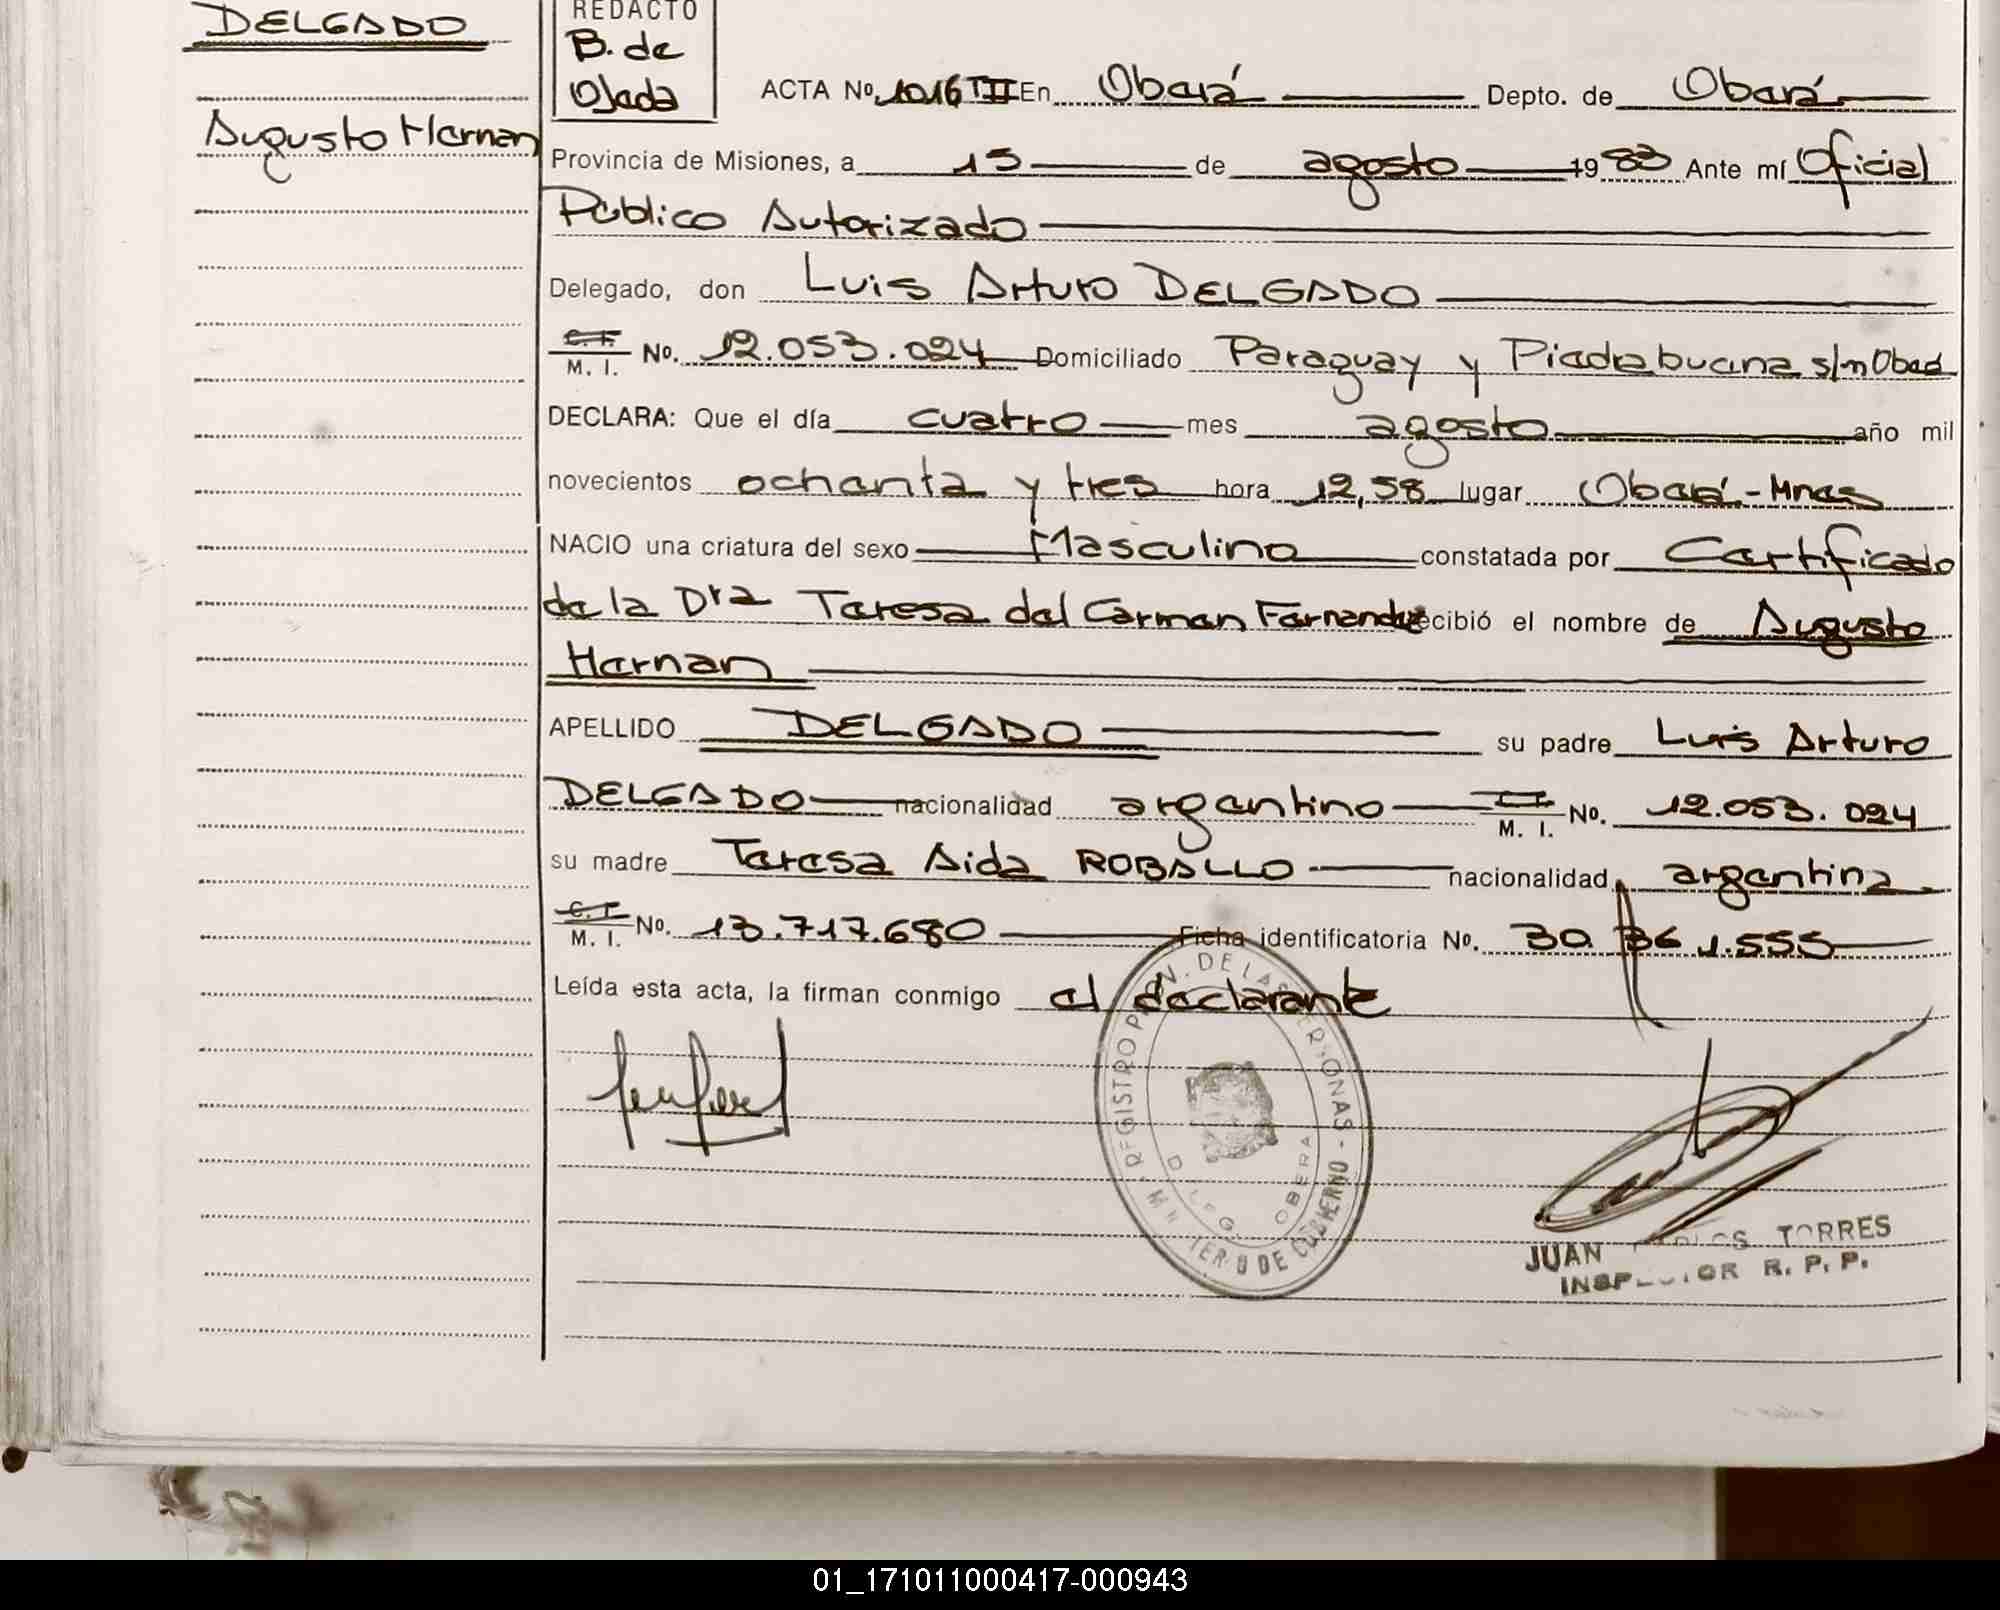 DELGADO
Augusto Hernan
REDACTO
B. de
Ojeda
ACTA No. 1016 T II En Oberá Depto. de Oberá
Provincia de Misiones, a 15 de agosto 1983 Ante mí Oficial
Público Autorizado
Delegado, don Luis Arturo DELGADO
C. I.
M. I. No. 12.053.024 Domiciliado Paraguay y Piedrabuena s/n Oberá
DECLARA: Que el día cuatro mes agosto año mil
novecientos ochenta y tres hora 12,58 lugar Oberá-Mnes
NACIO una criatura del sexo Masculino constatada por Certificado
de la Dra Teresa del Carmen Fernandez recibió el nombre de Augusto
Hernan
APELLIDO DELGADO su padre Luis Arturo
DELGADO nacionalidad argentino C. I.
M. I. No. 12.053.024
su madre Teresa Aida ROBALLO nacionalidad argentina
C. I.
M. I. No. 13.717.680 Ficha identificatoria No. 30.361.555
Leída esta acta, la firman conmigo el declarante
REGISTRO PROV. DE LAS PERSONAS - MINISTERIO DE GOBIERNO
DELEG. OBERA
JUAN CARLOS TORRES
INSPECTOR R. P. P.
01_171011000417-000943